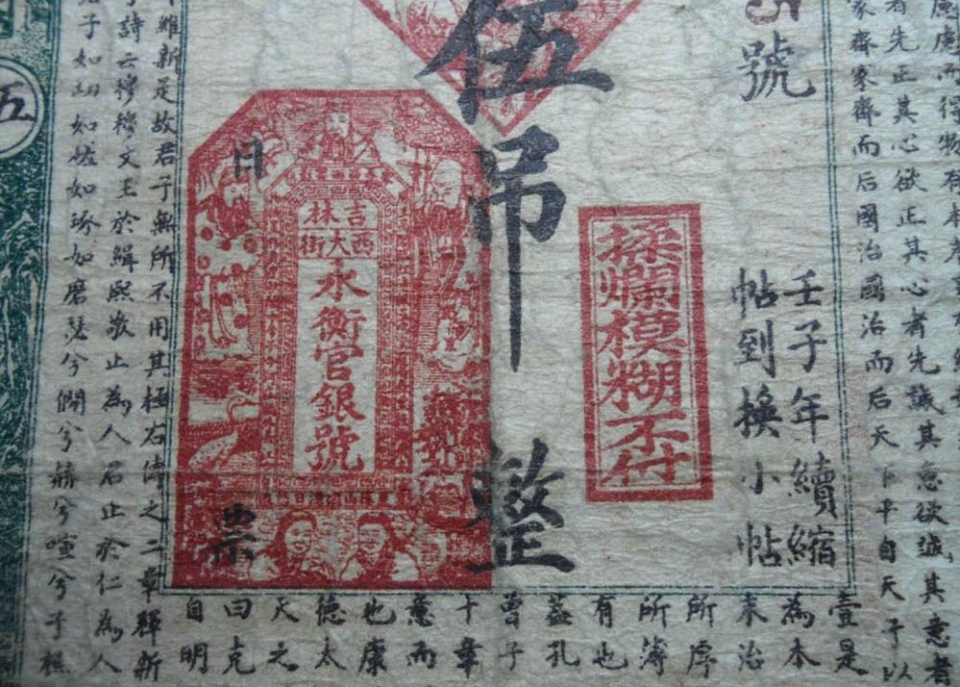 慮而得物有本
者先正其心欲正其心者先誠其意欲誠其意者
家齊家齊而后國治國治而后天下平自天子以
壹是
為本
末治
所厚
所薄
有也
蓋孔
曾子
十章
意而
也康
德太
天之
曰克
自明
維新是故君子無所不用其極右傳之二章釋新
詩云穆穆文王於緝熙敬止為人君止於仁為人
子如切如磋如琢如磨瑟兮僩兮赫兮喧兮子
號
壬子年續縮
帖到換小帖
揉爛模糊不付
伍吊整
日票
吉林
西大街
永衡官銀號
五